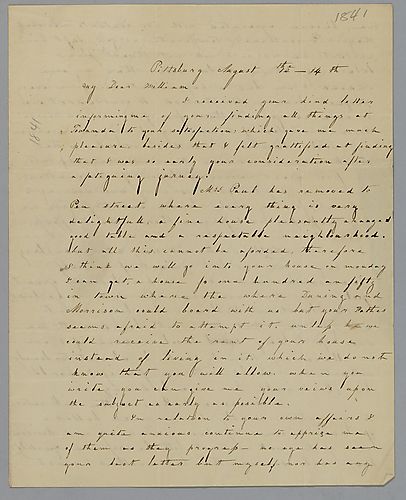 1841
Pittsburg August 14 th
My Dear William
I received your kind letter
informing me of your finding all things at
Towanda to your satisfaction which gave me much
pleasure besides that I felt gratified at finding
that I was so early your consideration after
a fatiguing journey.
Mrs Paul has removed to
Pen street where every thing is very
delightfull, a fine house pleasantly arranged
good table and a respectable neighbourhood.
but all this cannot be aforded, therefore
I think we will go into your house on monday
I can get a house for one hundred an fifty
in town where the where and
Morrison could board with us but your Father
seems afraid to attempt it. unless we
could receive the rent of your house
instead of living in it, which we do not
know that you will allow. when you
write you can give me your veiws upon
the subject as early as possible.
In relation to your own affairs I
am quite anxious continue to apprise me
of them as they progress no eye has seen
your last letter but myself nor has any
1841